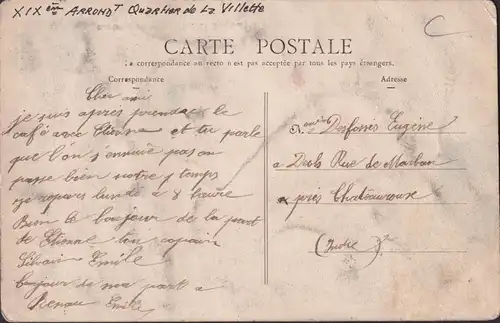 XIXem ARRONDT Quartier de La Villette
C
CARTE POSTALE
La correspondance au recto n'est pas acceptée par tous les pays étrangers.
Correspondance
Adresse
Cher ami
je suis après prendre le
café avec Étienne et te parle
que l'on s'ennuie pas on
passe bien notre temps
je repars lundi a 8 heure
Bien le bonjour de la part
de Étienne ton copain
Silvain Émile
bonjour de ma part a
Renau Émile
Desfosses Eugène
a Deols Rue de
près Chateauroux
(Indre)